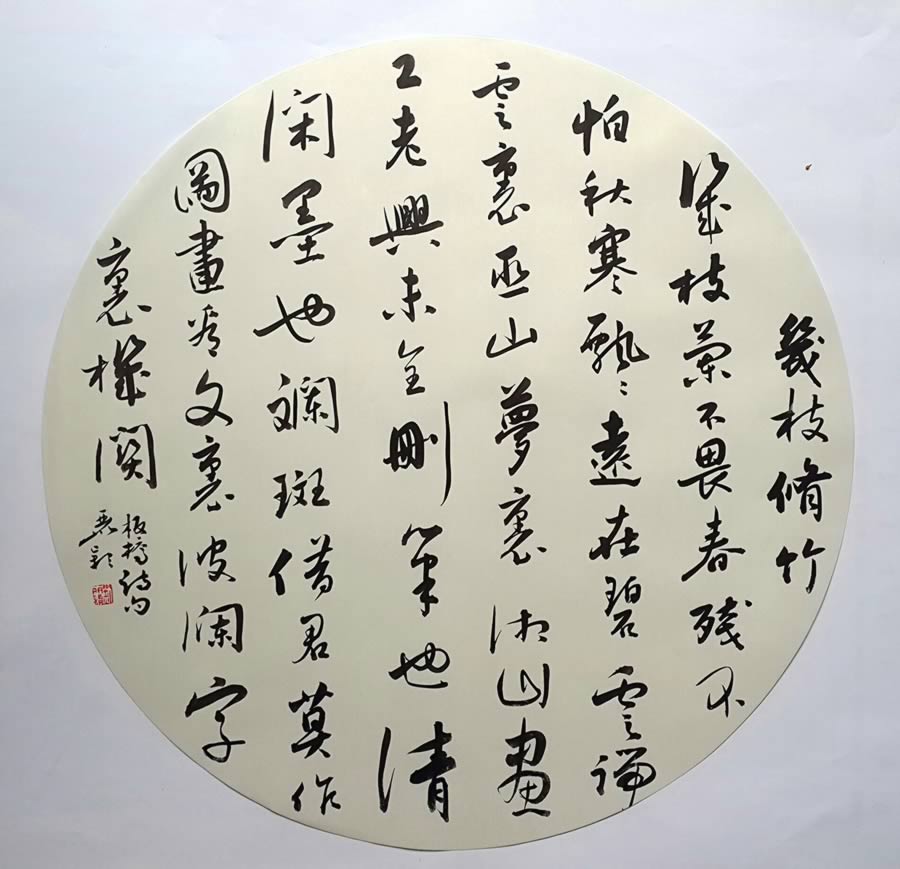 幾枝脩竹
幾枝蘭不畏春殘不
怕秋寒飄飄遠在碧雲端
雲裏巫山夢裏湘山畫
工老興未全刪筆也清
閑墨也斕斑借君莫作
圖畫看文裏波瀾字
裏機關
板橋詩句